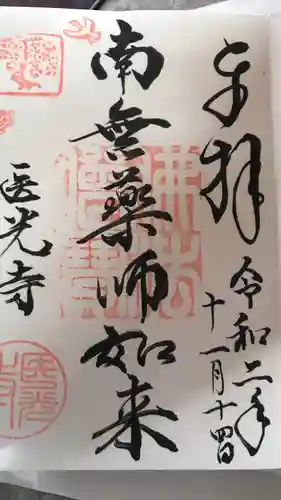 奉拝
令和二年
十一月十四日
南無薬師如来
医光寺